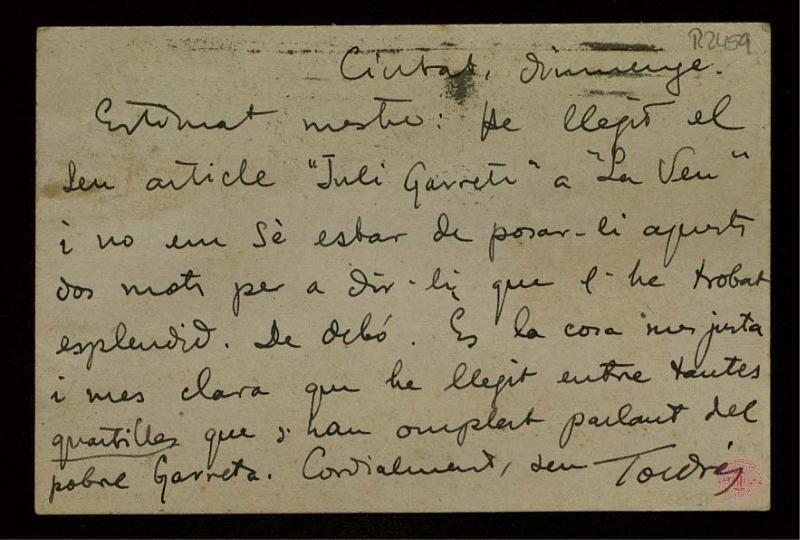 R2459
Ciutat, dimmenge.
Estimat mestre: He llegit el
seu article "Juli Garreta" a "La Veu"
i no em sè estar de posar-li aquests
dos mots per a dir-li que l-he trobat
esplendid. De debó. Es la cosa mes justa
i mes clara que he llegit entre tantes
quartilles que s'han omplert parlant del
pobre Garreta. Cordialment, seu